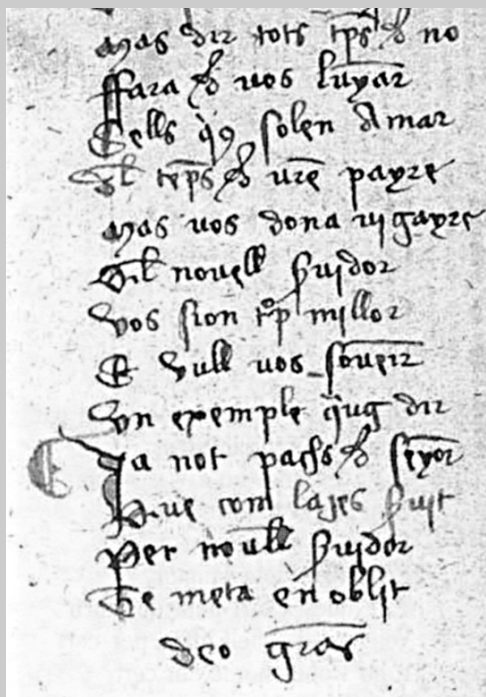 mas dir tots tps q no
ffara q vos lunyar
Cells q solen Amar
El temps q vre payre
mas vos dona vigayre
Sil novell svidor
Vos sion trop millor
E vull vos sovenir
Un exemple qug dir
Ja not pachs q seyor
Que com lajes svit
Per novell svidor
Te meta en oblit
deo gras